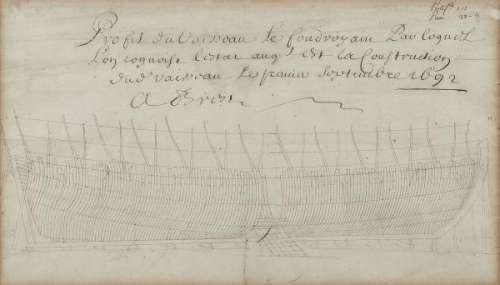 Profil du Vaisseau le foudroyant Par lequel
L'on cognoist l'estat auql est la Construction
dud vaisseau Le premier Septembre 1692
A Brest